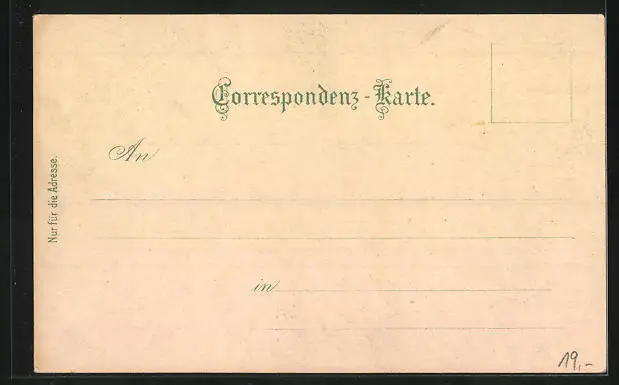 Correspondenz-Karte.
An
Nur für die Adresse.
in
19,-